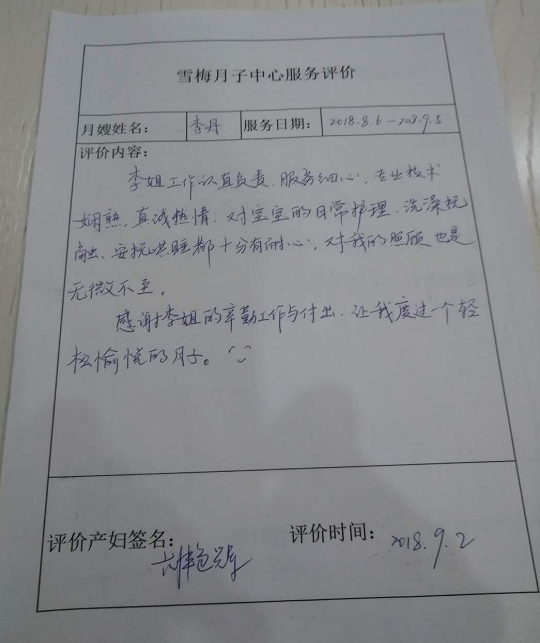 雪梅月子中心服务评价
月嫂姓名： 李丹 服务日期： 2018.8.6－2018.9.5
评价内容：
李姐工作认真负责、服务细心、专业技术
娴熟、真诚热情、对宝宝的日常护理、洗澡抚
触、安抚哄睡都十分有耐心、对我的照顾也是
无微不至。
感谢李姐的辛勤工作与付出、让我度过一个轻
松愉悦的月子。
评价产妇签名： 评价时间： 2018.9.2